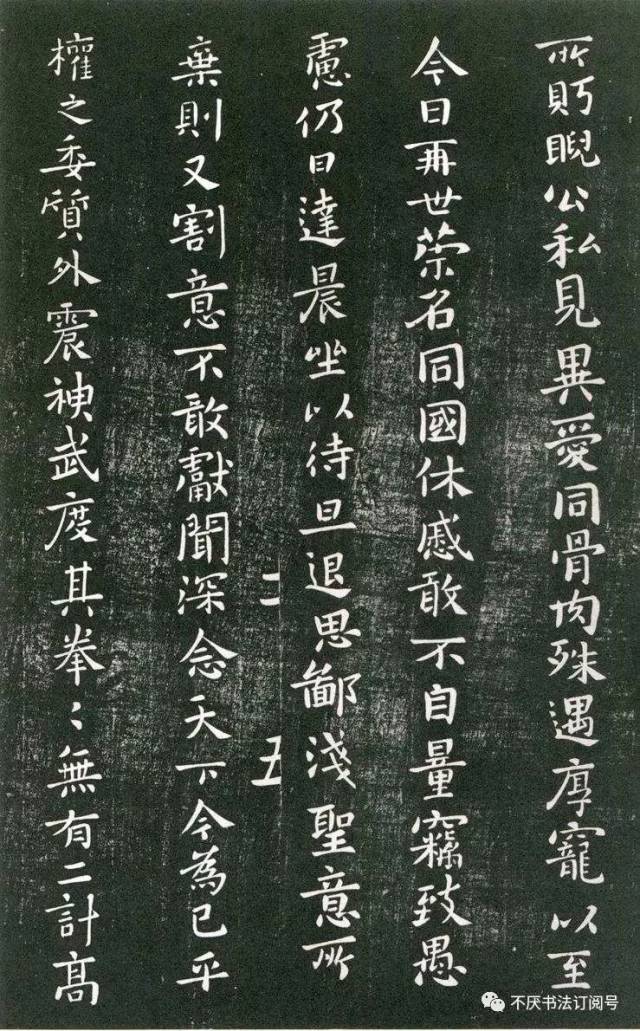 所貺睨公私見異愛同骨肉殊遇厚寵以至
今日再世荣名同國休慼敢不自量竊致愚
慮仍日達晨坐以待旦退思鄙淺聖意所
棄則又割意不敢獻聞深念天下今為已平
權之委質外震神武度其拳〻無有二計高
二 五
不厌书法订阅号